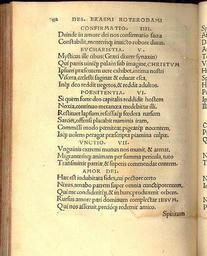 DES. ERASMI ROTERODAMI
CONFIRMATIO. IIII.
Deinde in amore dei nos confirmatio sacra
Constabilit, mentemque invicto robore durat.
EVCHARISTIA. V.
Mysticus ille cibus
Qui panis vinique palam sub imagine, CHRISTVM
Ipsum praesentem vere exhibet, intima nostri
Viscera, coelesti saginat & educat esca,
Inque deo reddit vegetos, & reddit adultos.
POENITENTIA. VI.
Si quem forte dei capitali dedidit hostem
Noxia, continuo metanoea medebitur illi.
Restituet lapsum, rescissaque foedera rursum
Sarciet, offensi placabit numinis iram,
Commissi modo poeniteat, pigeatque nocentem,
Isque volens peragat praescripta piamina culpae.
VNCTIO. VII.
Vnguinis extremi munus nos munit, & armat,
Migrantemque animam per summa pericula, tuto
Transmittit patriae, & superis commendat euntem.
AMOR DEI.
Haec est indubitata fides, cui pectore certo
Nitens, amabo patrem super omnia cunctipotentem,
Qui me condidit, & in hunc produxerit orbem.
Rursus amore pari dominum complectar IESVM,
Qui nos asseruit, precioque redemit amico.
Spiritum